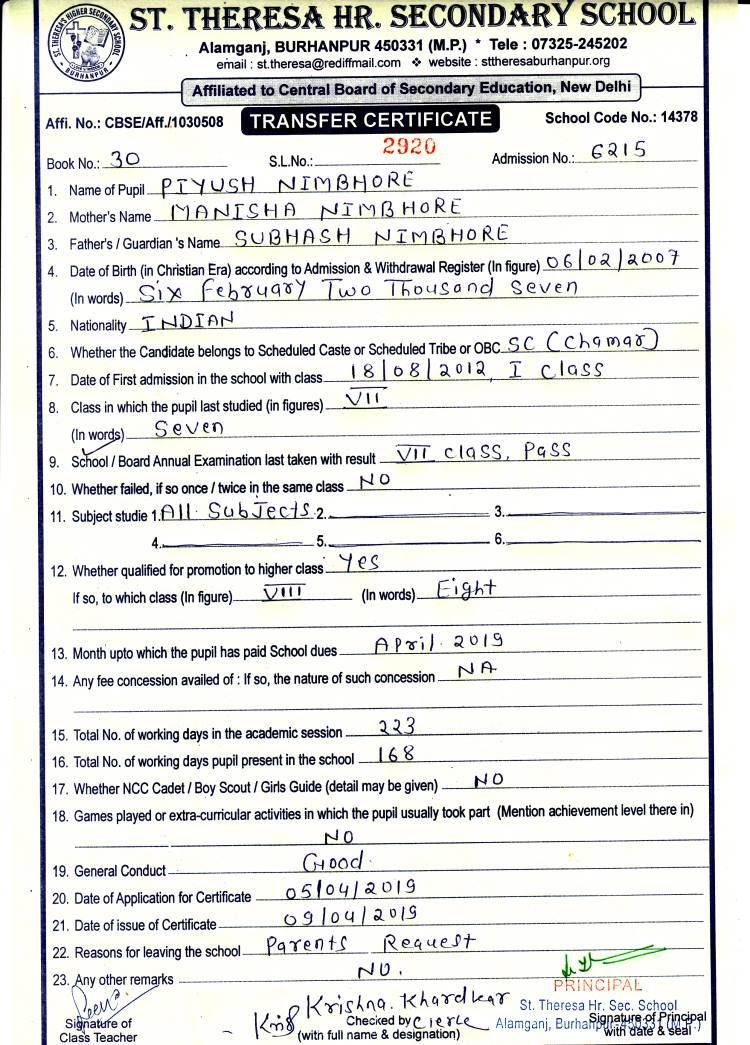 ST. THERESA'S HIGHER SECONDARY SCHOOL
BURHANPUR
ST. THERESA HR. SECONDARY SCHOOL
Alamganj, BURHANPUR 450331 (M.P.) * Tele : 07325-245202
email : st.theresa@rediffmail.com ❖ website : sttheresaburhanpur.org
Affiliated to Central Board of Secondary Education, New Delhi
Affi. No.: CBSE/Aff./1030508 TRANSFER CERTIFICATE School Code No.: 14378
Book No.: 30 S.L.No.: 2920 Admission No.: 6215
1. Name of Pupil PIYUSH NIMBHORE
2. Mother's Name MANISHA NIMBHORE
3. Father's / Guardian 's Name SUBHASH NIMBHORE
4. Date of Birth (in Christian Era) according to Admission & Withdrawal Register (In figure) 06/02/2007
(In words) Six February Two Thousand Seven
5. Nationality INDIAN
6. Whether the Candidate belongs to Scheduled Caste or Scheduled Tribe or OBC SC (Chamar)
7. Date of First admission in the school with class 18/08/2012, I class
8. Class in which the pupil last studied (in figures) VII
(In words) Seven
9. School / Board Annual Examination last taken with result VII class, Pass
10. Whether failed, if so once / twice in the same class NO
11. Subject studie 1. All Subjects 2. 3.
4. 5. 6.
12. Whether qualified for promotion to higher class Yes
If so, to which class (In figure) VIII (In words) Eight
13. Month upto which the pupil has paid School dues April 2019
14. Any fee concession availed of : If so, the nature of such concession NA
15. Total No. of working days in the academic session 223
16. Total No. of working days pupil present in the school 168
17. Whether NCC Cadet / Boy Scout / Girls Guide (detail may be given) NO
18. Games played or extra-curricular activities in which the pupil usually took part (Mention achievement level there in)
NO
19. General Conduct Good
20. Date of Application for Certificate 05/04/2019
21. Date of issue of Certificate 09/04/2019
22. Reasons for leaving the school Parents Request
23. Any other remarks NO.
PRINCIPAL
St. Theresa Hr. Sec. School
Alamganj, Burhanpur-450331 (M.P.)
Krishna. Khardkar
Signature of Checked by Clerk Signature of Principal
Class Teacher (with full name & designation) with date & seal